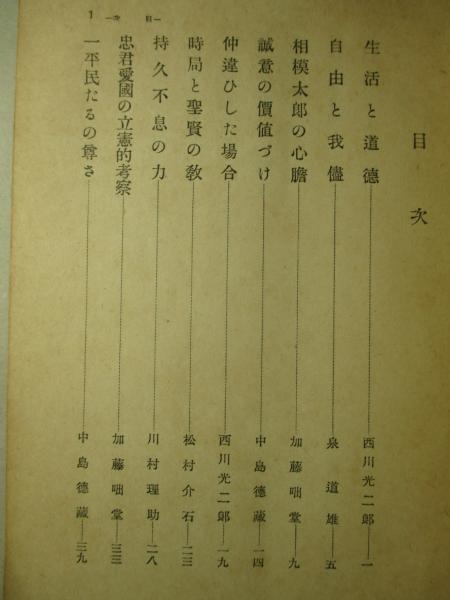 目次
生活と道德 西川光二郎 一
自由と我儘 泉道雄 五
相模太郎の心膽 加藤咄堂 九
誠意の價値づけ 中島德藏 一四
仲違ひした場合 西川光二郎 一九
時局と聖賢の教 松村介石 二三
持久不息の力 川村理助 二八
忠君愛國の立憲的考察 加藤咄堂 三三
一平民たるの尊さ 中島德藏 三九
—目次— 1